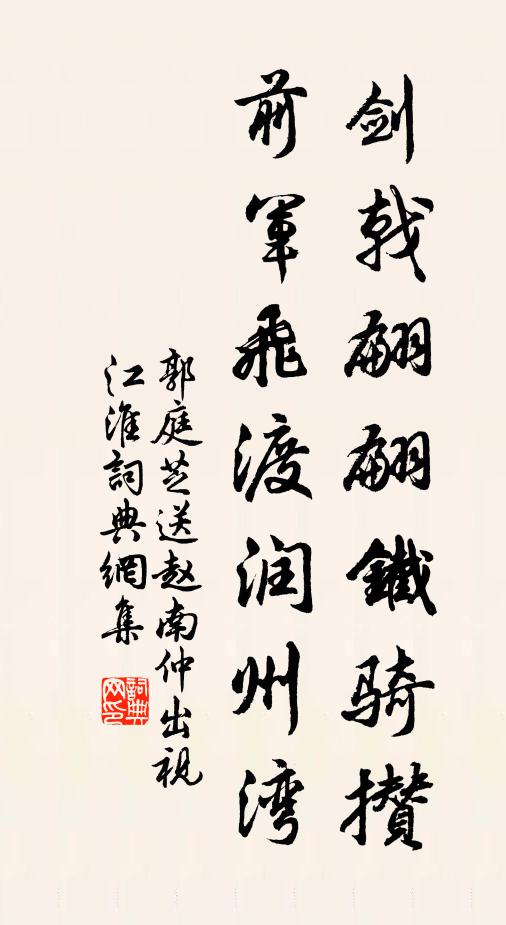 剑戟翩翩鐵骑攅
前军飛渡润州湾
郭庭芝送赵南仲出視
江淮詞典網集
詞典网印